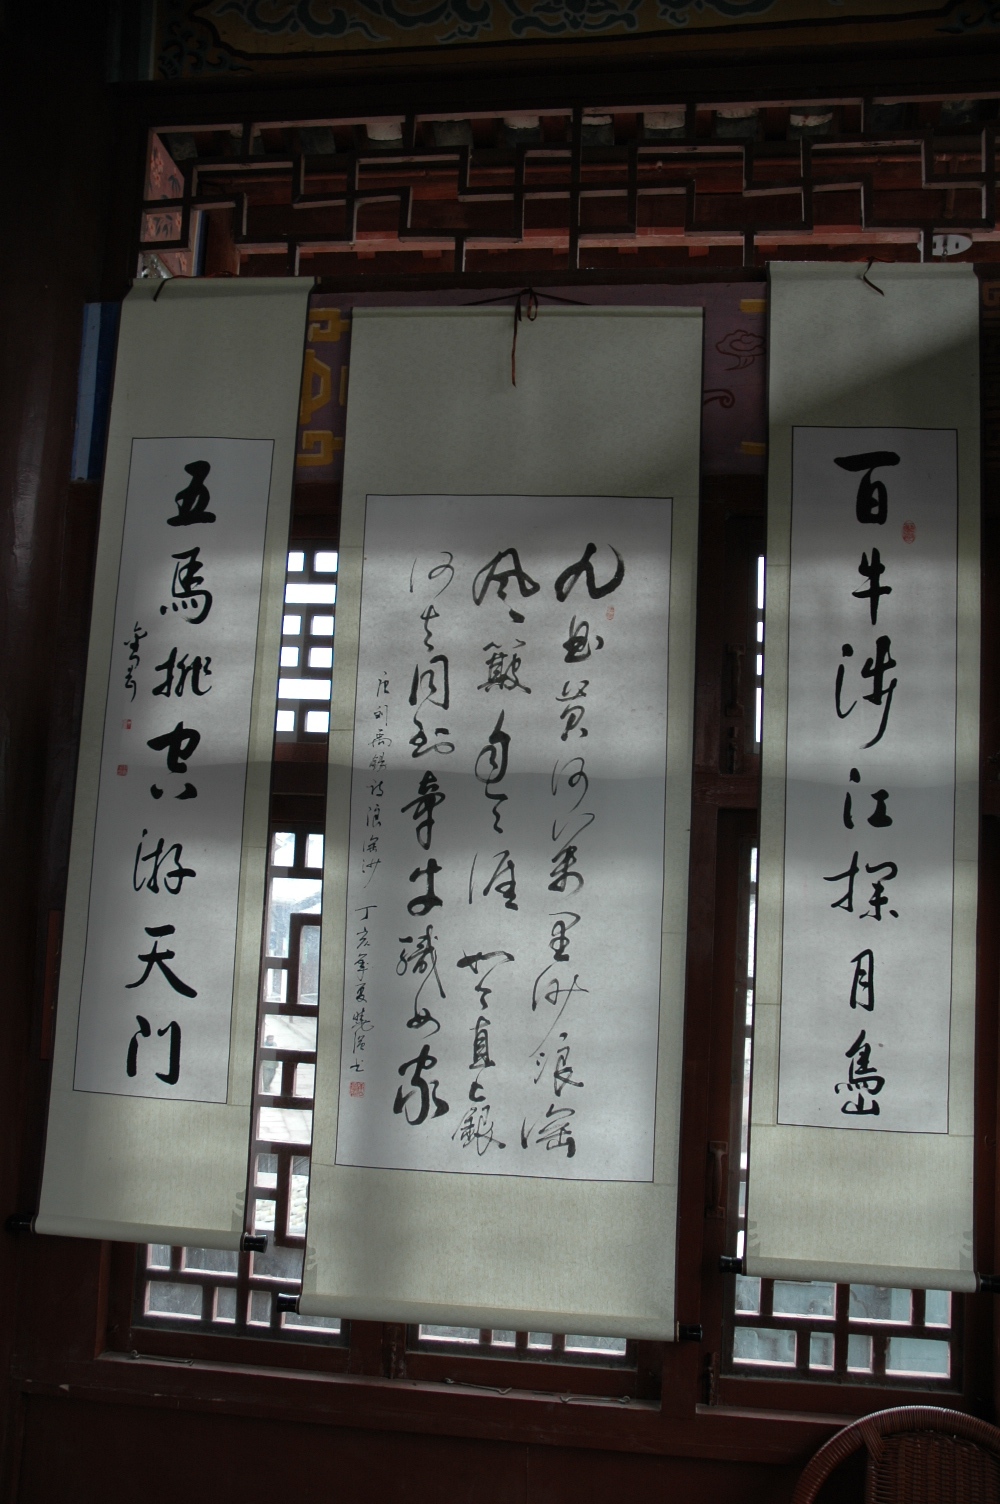 百牛涉江探月岛
九曲黄河万里沙浪淘
风簸自天涯如今直上银
河去同到牵牛织女家
唐刘禹锡诗浪淘沙 丁亥年夏晓
五马排空游天门